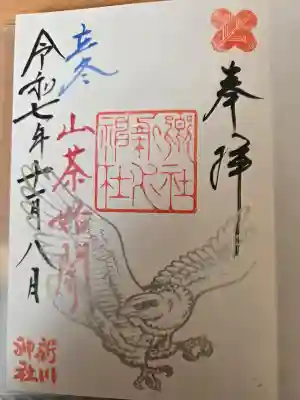 奉拝
郷社
新川
神社
立冬
山茶始開
令和七年十一月八日
新川
神社